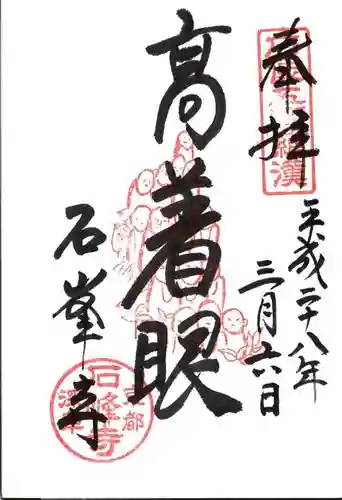 奉拝
平成二十八年
三月六日
高着眼
石峯寺
京都
石峰寺
深草